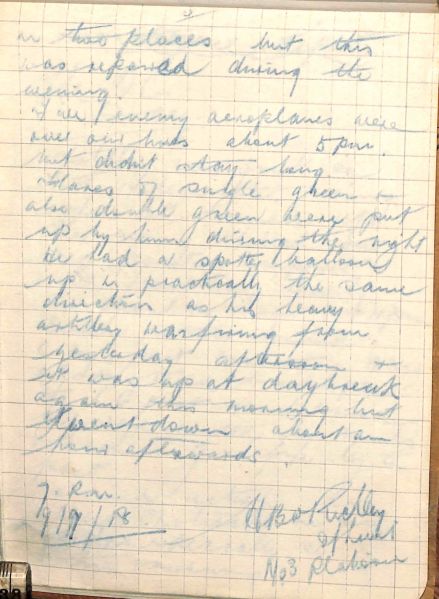 in two places but this
was repaired during the
evening.
enemy aeroplanes were
over our lines about 5 pm.
but didnt stay long
Flares of single green +
also double green were put
up by him during the night
He had a spotting balloon
up in practically the same
direction as his heavy
artillery was firing from
yesterday afternoon +
it was up at daybreak
again this morning but
went down about an
hour afterwards.
7. P.m.
9/7/18
No3 Platoon